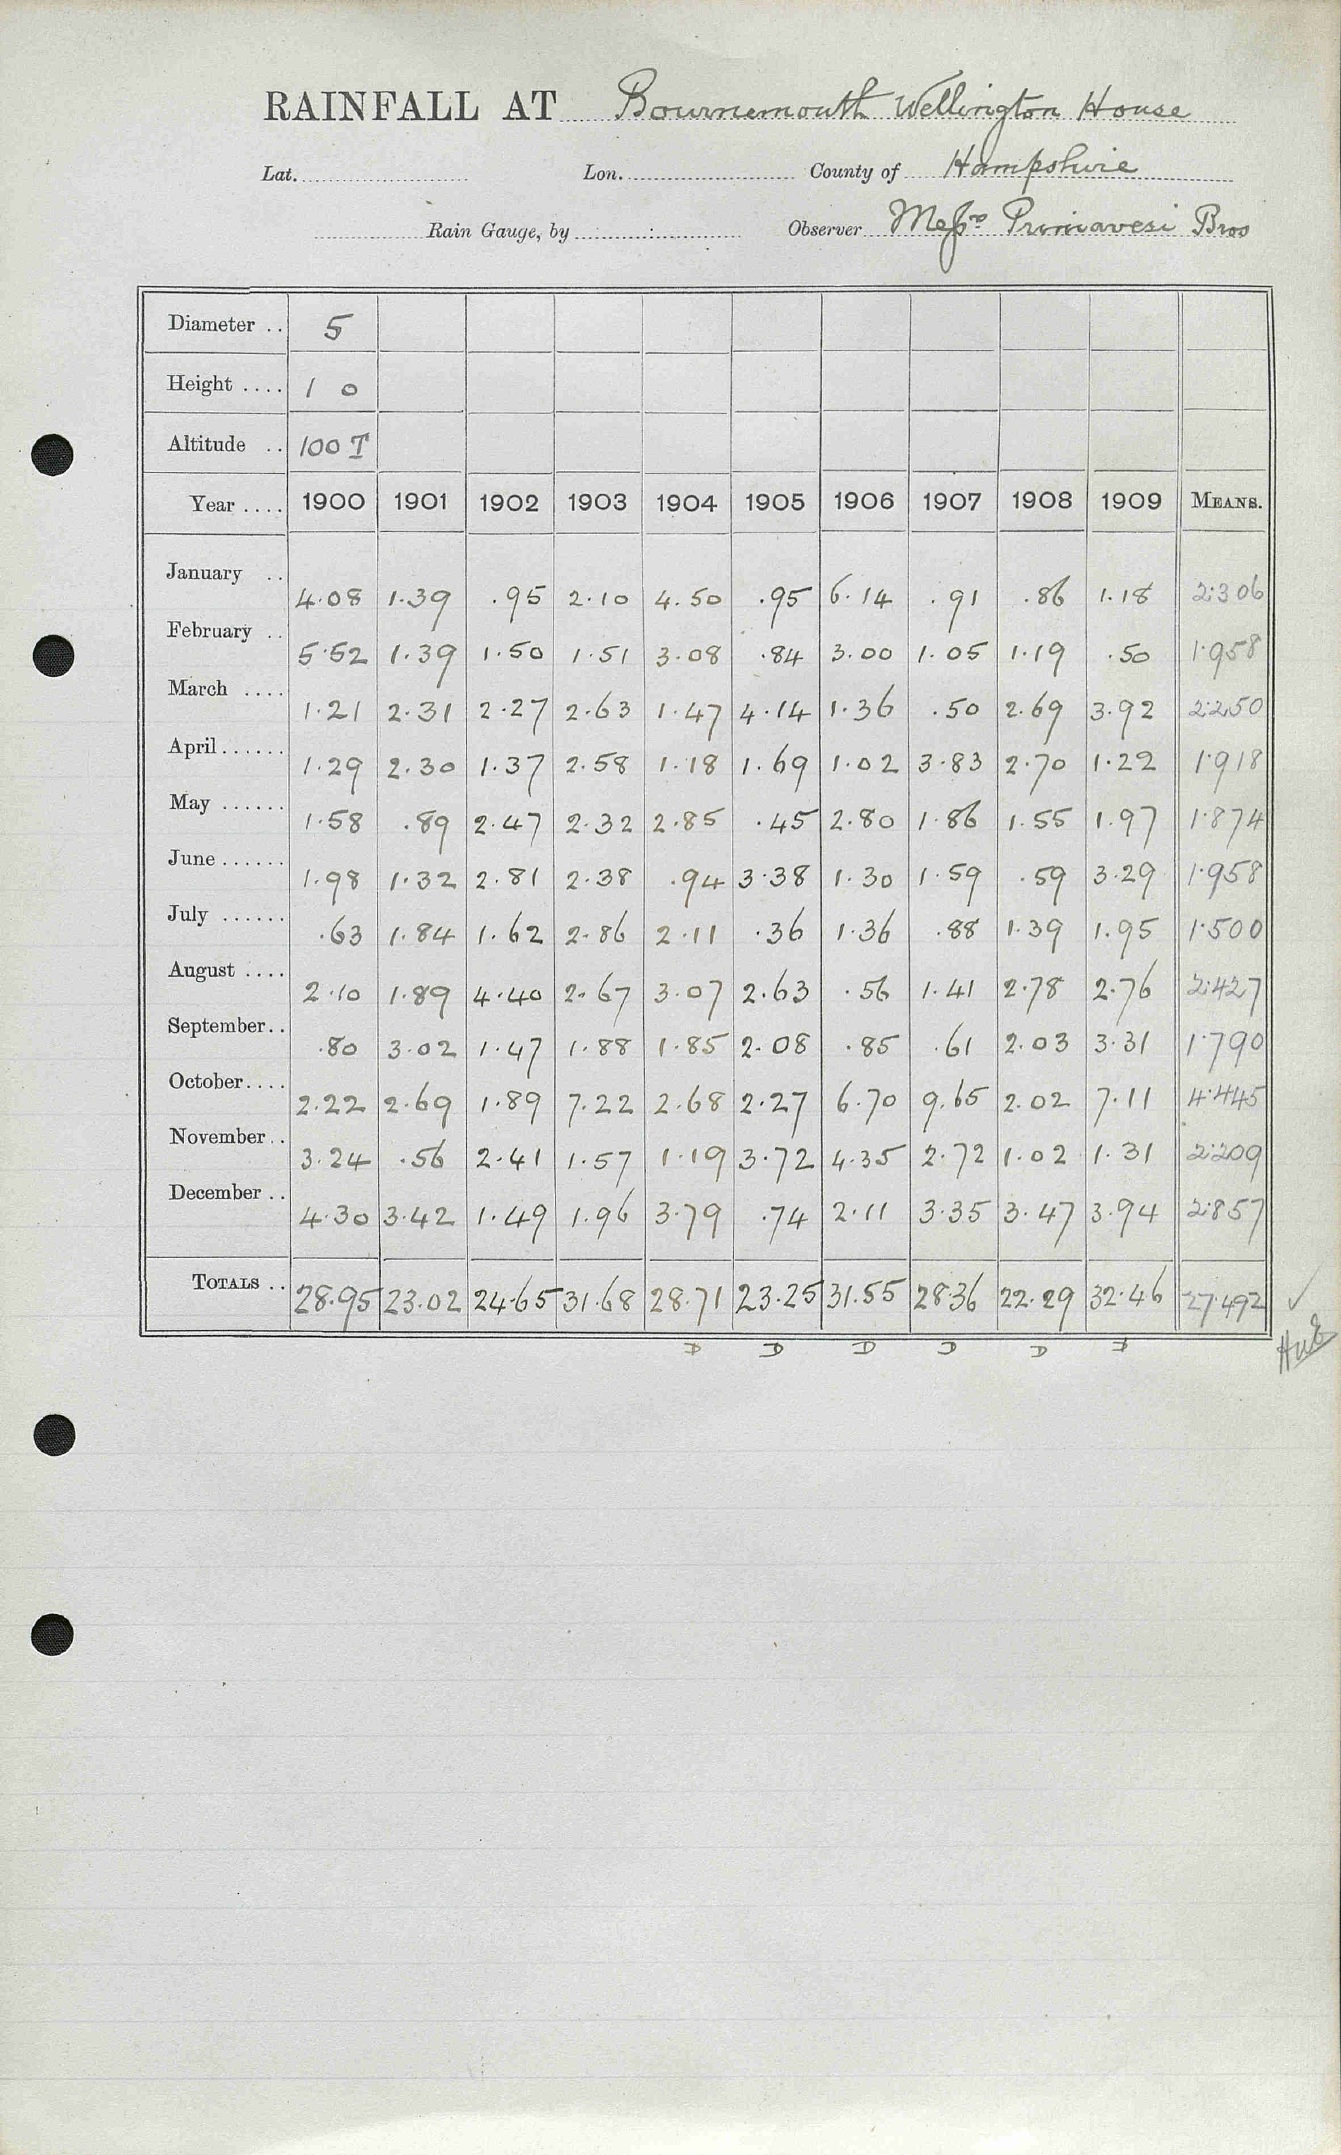 RAINFALL AT Bournemouth Wellington House
Lat. Lon. County of Hampshire
Rain Gauge, by Observer Messrs Primavesi Bros
Diameter .. 5
Height .... 1 0
Altitude .. 100 T
Year .... 1900 1901 1902 1903 1904 1905 1906 1907 1908 1909 MEANS.
January .. 4.08 1.39 .95 2.10 4.50 .95 6.14 .91 .86 1.18 2.306
February .. 5.52 1.39 1.50 1.51 3.08 .84 3.00 1.05 1.19 .50 1.958
March .... 1.21 2.31 2.27 2.63 1.47 4.14 1.36 .50 2.69 3.92 2.250
April ...... 1.29 2.30 1.37 2.58 1.18 1.69 1.02 3.83 2.70 1.22 1.918
May ...... 1.58 .89 2.47 2.32 2.85 .45 2.80 1.86 1.55 1.97 1.874
June ...... 1.98 1.32 2.81 2.38 .94 3.38 1.30 1.59 .59 3.29 1.958
July ...... .63 1.84 1.62 2.86 2.11 .36 1.36 .88 1.39 1.95 1.500
August .... 2.10 1.89 4.40 2.67 3.07 2.63 .56 1.41 2.78 2.76 2.427
September .. .80 3.02 1.47 1.88 1.85 2.08 .85 .61 2.03 3.31 1.790
October .... 2.22 2.69 1.89 7.22 2.68 2.27 6.70 9.65 2.02 7.11 4.445
November .. 3.24 .56 2.41 1.57 1.19 3.72 4.35 2.72 1.02 1.31 2.209
December .. 4.30 3.42 1.49 1.96 3.79 .74 2.11 3.35 3.47 3.94 2.857
TOTALS .. 28.95 23.02 24.65 31.68 28.71 23.25 31.55 28.36 22.29 32.46 27.492
D D D D D D